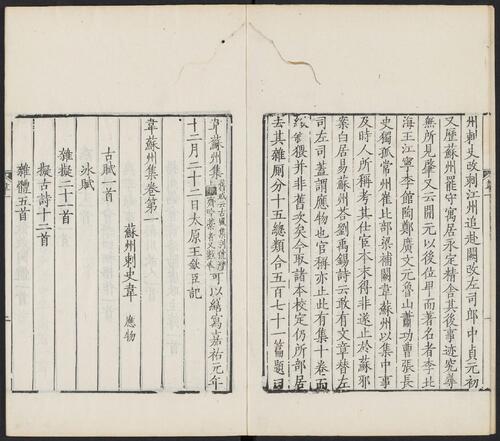 州刺史改刺江州追赴闕改左司郎中貞元初
又歷蘇州罷守寓居永定精舍其後事迹究尋
無所見肇又云開元以後位卑而著名者李北
海王江寧李館陶鄭廣文元魯山蕭功曹張長
史獨孤常州崔比部梁補闕韋蘇州以集中事
及時人所稱考其仕宦本末得非遂止於蘇邪
案白居易蘇州荅劉禹錫詩云敢有文章替左
司左司蓋謂應物也官稱亦止此有集十卷而
綴敘猥并非舊次矣今取諸本校定仍所部居
去其雜厠分十五總類合五百七十一篇題曰
韋蘇州集
可以繕寫嘉祐元年
十二月二十二日太原王欽臣記
韋蘇州集卷第一
蘇州刺史韋 應物
古賦一首
冰賦
雜擬二十一首
擬古詩十二首
雜體五首